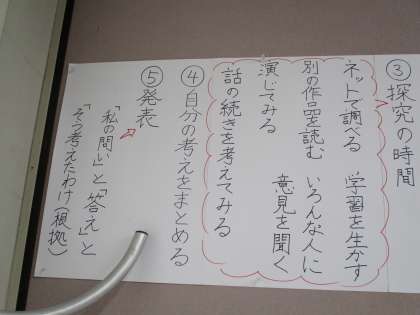 ③探究の時間
ネットで調べる　学習を生かす
別の作品を読む　いろんな人に
演じてみる　意見を聞く
話の続きを考えてみる
④自分の考えをまとめる
⑤発表
「私の問い」と「答え」と
「そう考えたわけ(根拠)」